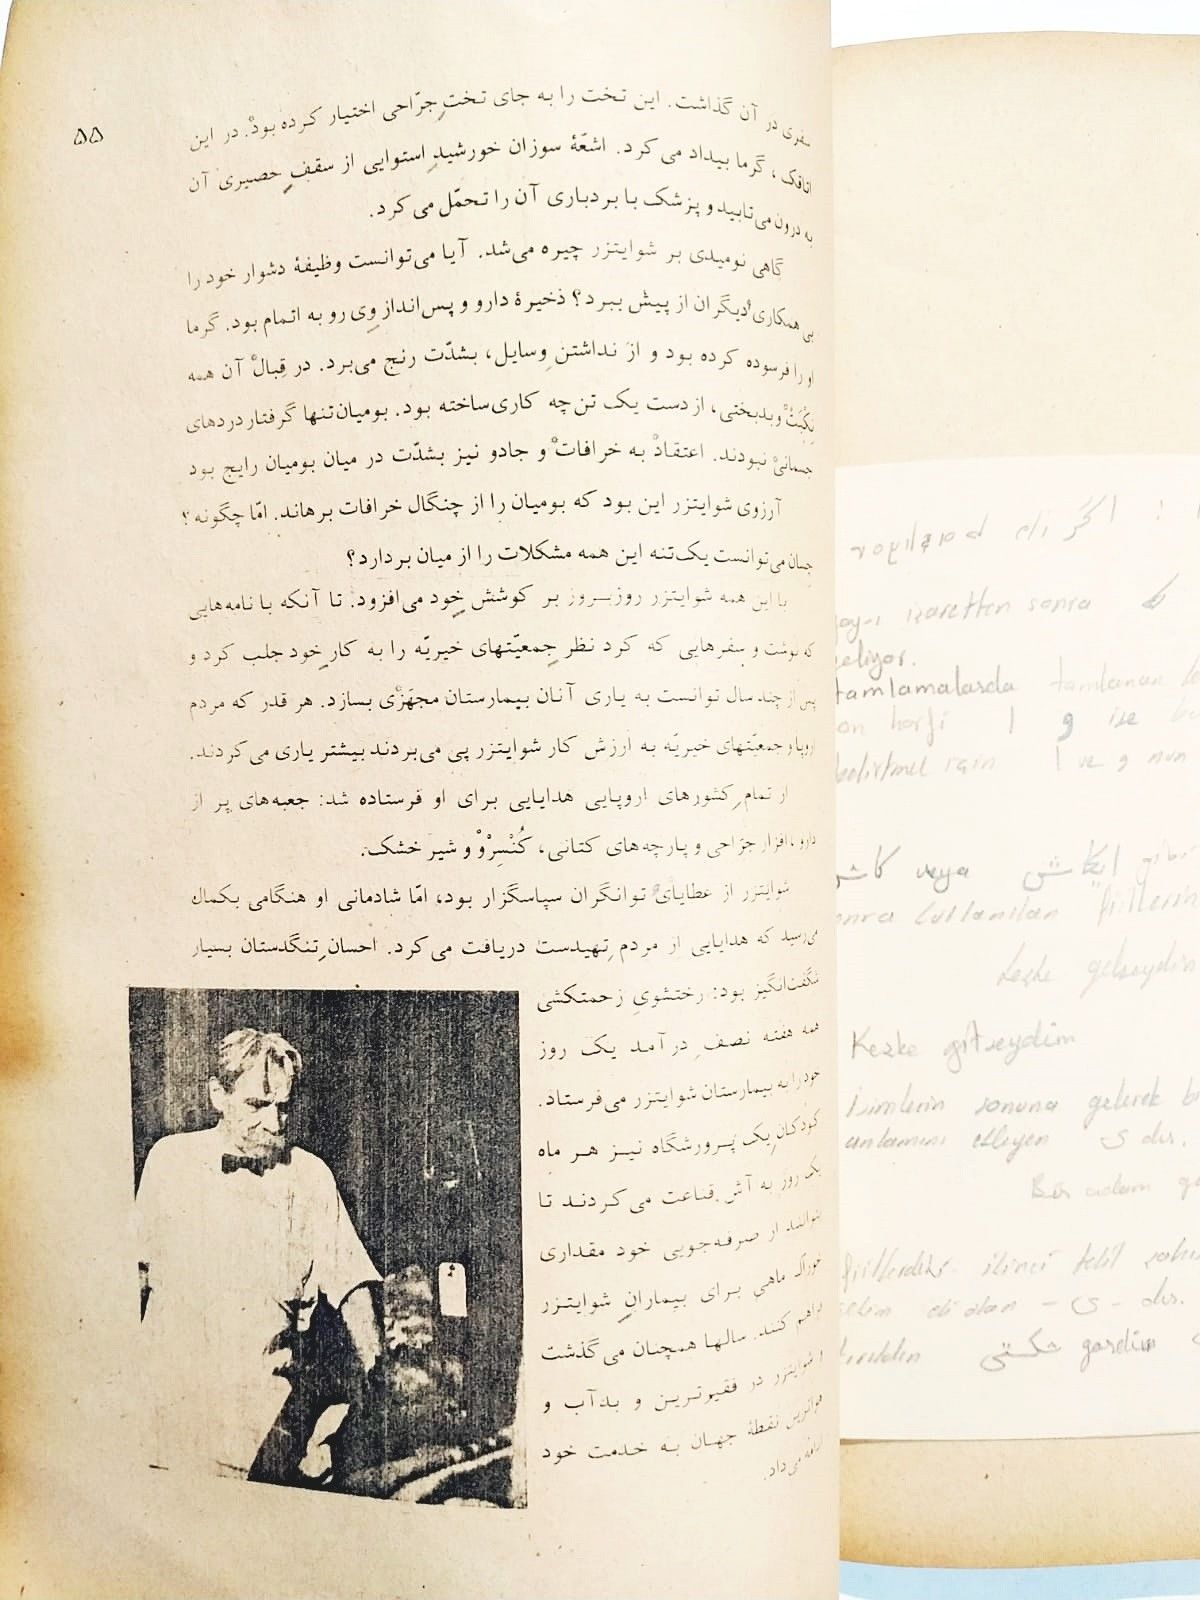 ۵۵
سفری در آن گذاشت. این تخت را به جای تختِ جرّاحی اختیار کرده بودْ. در این
اتاقک، گرما بیداد می‌کرد. اشعّهٔ سوزان خورشیدِ استوایی از سقفِ حصیری آن
به درون می‌تابید و پزشک با بردباری آن را تحمّل می‌کرد.
گاهی نومیدی بر شوایتزر چیره می‌شد. آیا می‌توانست وظیفهٔ دشوار خود را
بی همکاری دیگران از پیش ببرد؟ ذخیرهٔ دارو و پس‌اندازِ وی رو به اتمام بود. گرما
او را فرسوده کرده بود و از نداشتنِ وسایل، بشدّت رنج می‌برد. در قِبالْ آن همه
نِکْبَتْ و بدبختی، از دست یک تن چه کاری ساخته بود. بومیان تنها گرفتار دردهای
جسمانی نبودند. اعتقادْ به خرافاتْ و جادو نیز بشدّت در میان بومیان رایج بود
آرزوی شوایتزر این بود که بومیان را از چنگال خرافات برهاند. امّا چگونه؟
چسان می‌توانست یک‌تنه این همه مشکلات را از میان بردارد؟
با این همه شوایتزر روزبروز بر کوشش خود می‌افزود. تا آنکه با نامه‌هایی
که نوشت و سفرهایی که کرد نظر جمعیّتهای خیریّه را به کار خود جلب کرد و
پس از چند سال توانست به یاری آنان بیمارستان مجهّزی بسازد. هر قدر که مردم
اروپا و جمعیّتهای خیریّه به ارزش کار شوایتزر پی می‌بردند بیشتر یاری می‌کردند.
از تمامِ کشورهای اروپایی هدایایی برای او فرستاده شد: جعبه‌های پر از
دارو، افزار جرّاحی و پارچه‌های کتانی، کُنْسِرْوْ و شیر خشک.
شوایتزر از عطایای توانگران سپاسگزار بود، امّا شادمانی او هنگامی بکمال
می‌رسید که هدایایی از مردم تهیدست دریافت می‌کرد. احسانِ تنگدستان بسیار
شگفت‌انگیز بود: رختشویِ زحمتکشی
همه هفته نصفِ درآمد یک روز
خود را به بیمارستان شوایتزر می‌فرستاد.
کودکانِ یک پرورشگاه نیز هر ماه
یک روز به آش قناعت می‌کردند تا
بتوانند از صرفه‌جویی خود مقداری
خوراک ماهی برای بیمارانِ شوایتزر
فراهم کنند. سالها همچنان می‌گذشت
و شوایتزر در فقیرترین و بدآب و
هواترین نقطهٔ جهان به خدمت خود
ادامه می‌داد.
: اگر
izaretten sonra که
geliyor.
tamlamalarda tamlanan
son harfi ا و ise
belirtmek için ا ve و nun
veya ایکاش
sonra kullanılan fiillerin
keşke gelseydin
Keşke gitseydim
isimlerin sonuna gelerek
anlamını ekleyen ی dır.
Bir adam
fiillerdeki ikinci tekil
olan - ی - dır.
gördüm